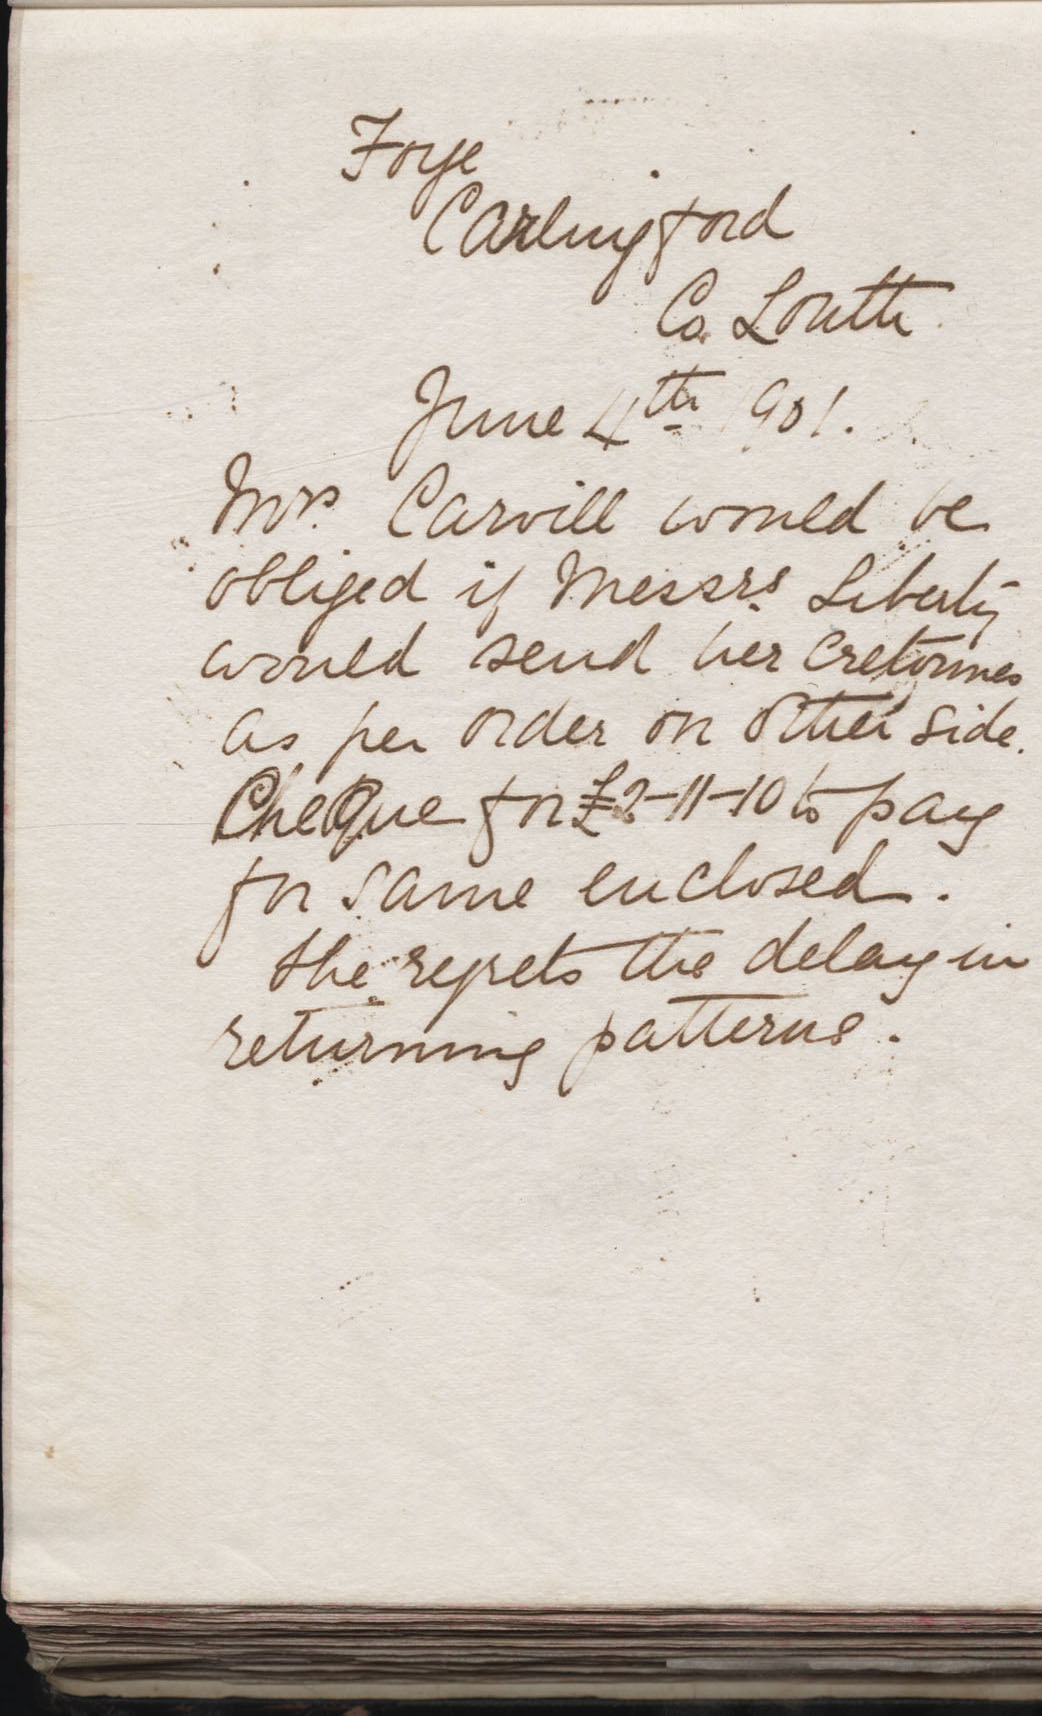 Foye
Carlingford
Co. Louth.
June 4th 1901.
Mrs. Carvill would be
obliged if Messrs. Liberty
would send her cretonnes
as per order on other side.
Cheque for £2-11-10 to pay
for same enclosed.
She regrets the delay in
returning patterns.